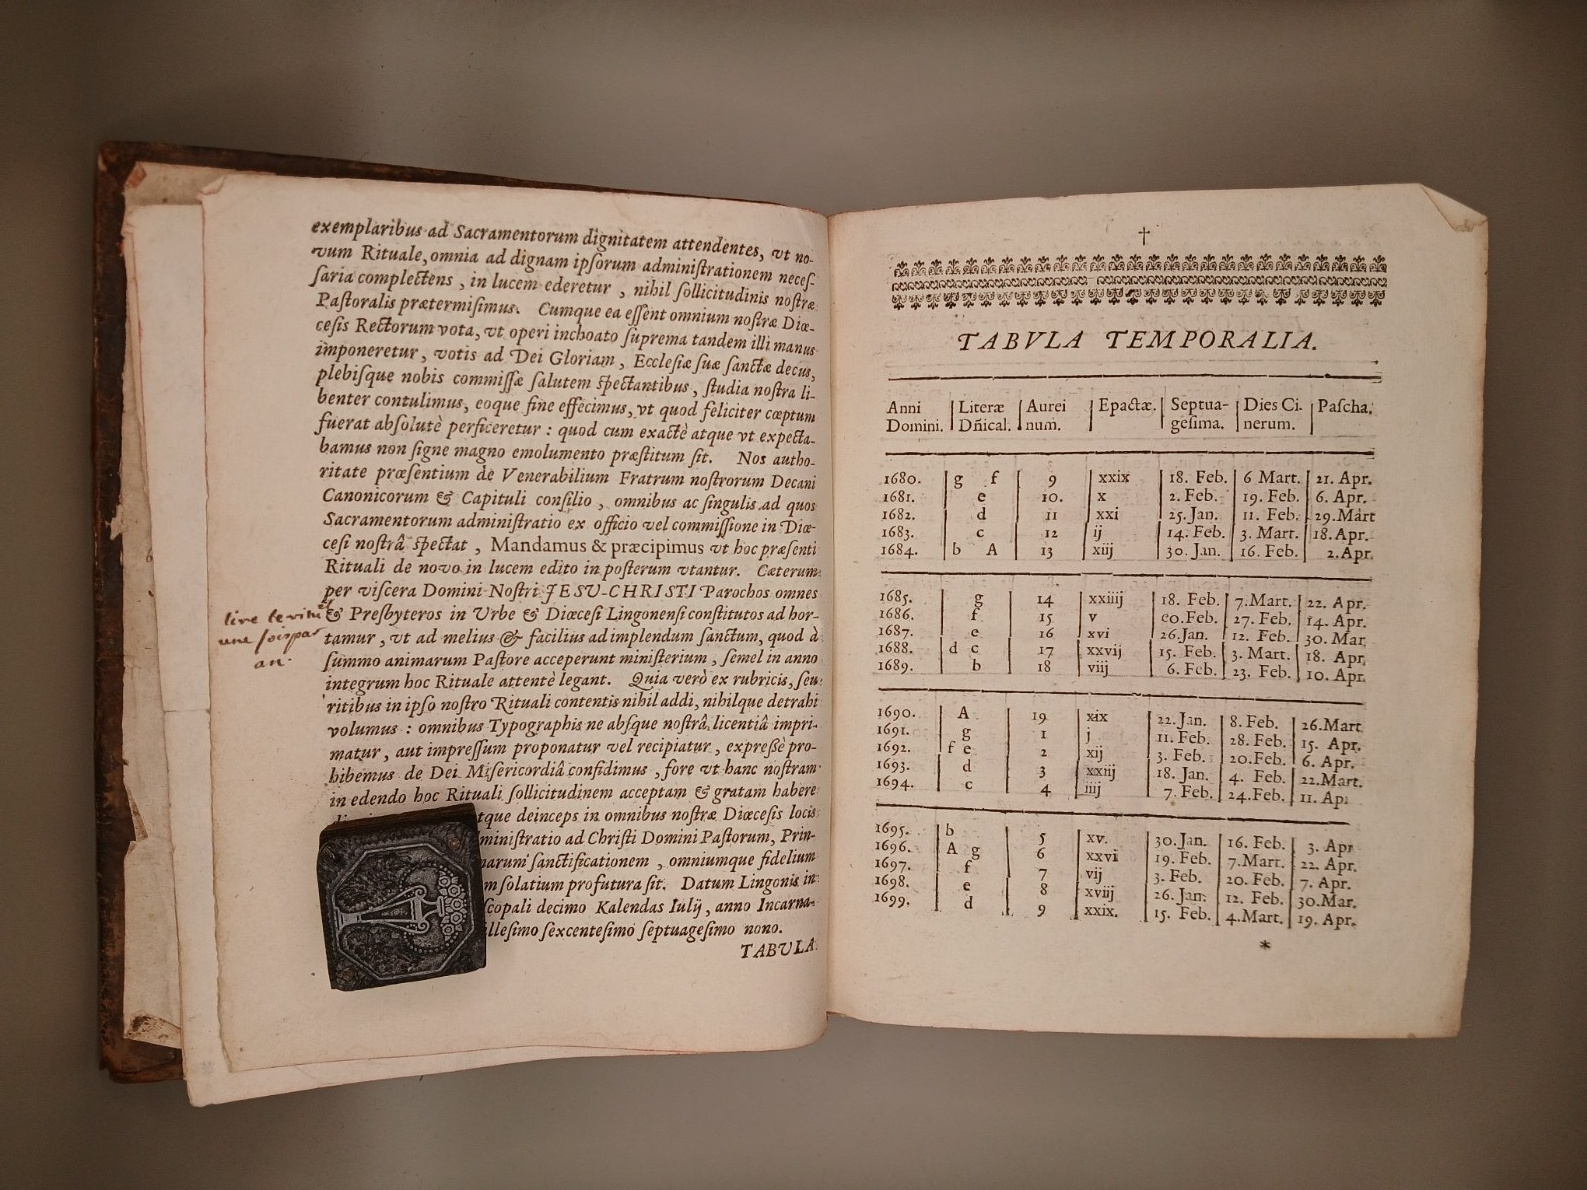 exemplaribus ad Sacramentorum dignitatem attendentes, vt no-
vum Rituale, omnia ad dignam ipſorum adminiſtrationem neceſ-
ſaria complectens, in lucem ederetur, nihil ſollicitudinis noſtræ
Paſtoralis prætermiſimus. Cumque ea eſſent omnium noſtræ Diœ-
ceſis Rectorum vota, vt operi inchoato ſuprema tandem illi manus
imponeretur, votis ad Dei Gloriam, Eccleſiæ ſuæ ſanctæ decus,
plebiſque nobis commiſſæ ſalutem ſpectantibus, ſtudia noſtra li-
benter contulimus, eoque fine effecimus, vt quod feliciter cœptum
fuerat abſolutè perficeretur : quod cum exactè atque vt expecta-
bamus non ſigne magno emolumento præſtitum ſit. Nos autho-
ritate præſentium de Venerabilium Fratrum noſtrorum Decani
Canonicorum & Capituli conſilio, omnibus ac ſingulis ad quos
Sacramentorum adminiſtratio ex officio vel commiſſione in Diœ-
ceſi noſtrâ ſpectat, Mandamus & præcipimus vt hoc præſenti
Rituali de novo in lucem edito in poſterum vtantur. Cæterum
per viſcera Domini Noſtri JESU-CHRISTI Parochos omnes
& Preſbyteros in Urbe & Diœceſi Lingonenſi conſtitutos ad hor-
tamur, vt ad melius & facilius adimplendum ſanctum, quod à
ſummo animarum Paſtore acceperunt miniſterium, ſemel in anno
integrum hoc Rituale attentè legant. Quia verò ex rubricis, ſeu
ritibus in ipſo noſtro Rituali contentis nihil addi, nihilque detrahi
volumus : omnibus Typographis ne abſque noſtrâ licentiâ impri-
matur, aut impreſſum proponatur vel recipiatur, expreßè pro-
hibemus de Dei Miſericordiâ confidimus, fore vt hanc noſtram
in edendo hoc Rituali ſollicitudinem acceptam & gratam habere
tque deinceps in omnibus noſtræ Diœceſis locis
miniſtratio ad Chriſti Domini Paſtorum, Prin-
marum ſanctificationem, omniumque fidelium
m ſolatium profutura ſit. Datum Lingonis in
ſcopali decimo Kalendas Iulij, anno Incarna-
illeſimo ſexcenteſimo ſeptuageſimo nono.
TABULA
lire
une fois par
an.
†
TABVLA TEMPORALIA.
Anni Domini. | Literæ Dñical. | Aurei num. | Epactæ. | Septua- geſima. | Dies Ci- nerum. | Paſcha.
1680. g f 9 xxix 18. Feb. 6 Mart. 21. Apr.
1681. e 10. x 2. Feb. 19. Feb. 6. Apr.
1682. d 11 xxi 25. Jan. 11. Feb. 29. Mart
1683. c 12 ij 14. Feb. 3. Mart. 18. Apr.
1684. b A 13 xiij 30. Jan. 16. Feb. 2. Apr.
1685. g 14 xxiiij 18. Feb. 7. Mart. 22. Apr.
1686. f 15 v 10. Feb. 27. Feb. 14. Apr.
1687. e 16 xvi 26. Jan. 12. Feb. 30. Mar.
1688. d c 17 xxvij 15. Feb. 3. Mart. 18. Apr.
1689. b 18 viij 6. Feb. 23. Feb. 10. Apr.
1690. A 19 xix 22. Jan. 8. Feb. 26. Mart
1691. g 1 j 11. Feb. 28. Feb. 15. Apr.
1692. f e 2 xij 3. Feb. 20. Feb. 6. Apr.
1693. d 3 xxiij 18. Jan. 4. Feb. 22. Mart.
1694. c 4 iiij 7. Feb. 24. Feb. 11. Ap
1695. b 5 xv. 30. Jan. 16. Feb. 3. Apr
1696. A g 6 xxvi 19. Feb. 7. Mart. 22. Apr.
1697. f 7 vij 3. Feb. 20. Feb. 7. Apr.
1698. e 8 xviij 26. Jan. 12. Feb. 30. Mar.
1699. d 9 xxix. 15. Feb. 4. Mart. 19. Apr.
*